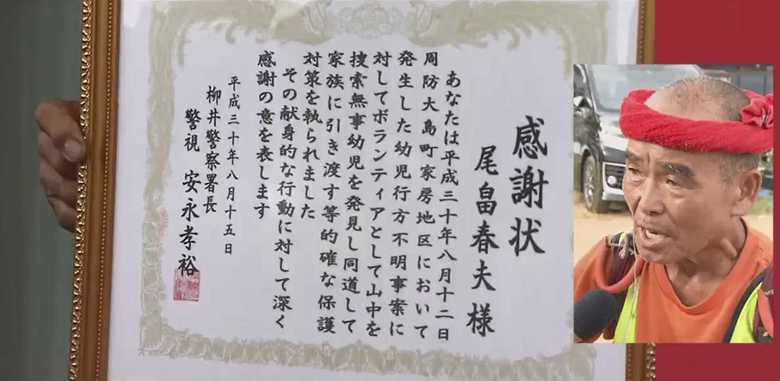 感謝状
尾畠春夫様
あなたは平成三十年八月十二日
周防大島町家房地区において
発生した幼児行方不明事案に
対してボランティアとして山中を
捜索無事幼児を発見し同道して
家族に引き渡す等的確な保護
対策を執られました
その献身的な行動に対して深く
感謝の意を表します
平成三十年八月十五日
柳井警察署長
警視 安永孝裕